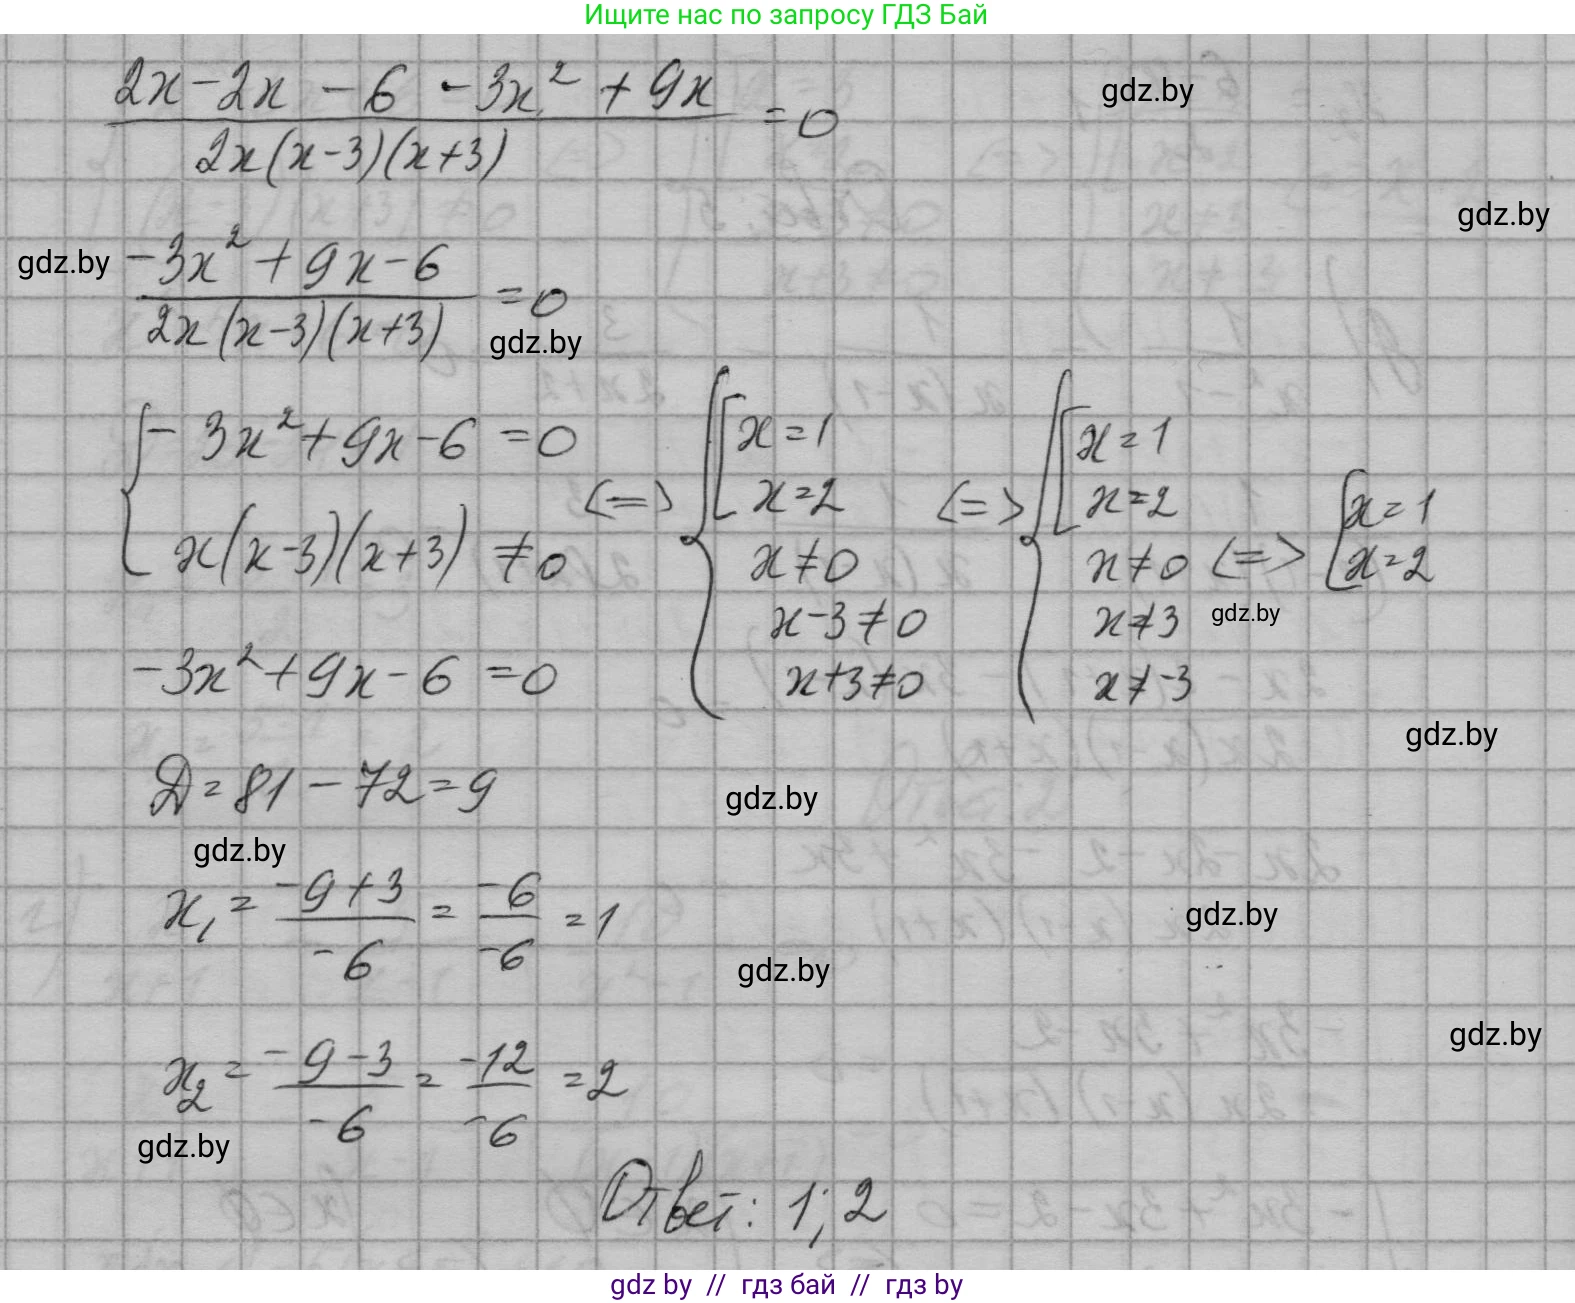 Ищите нас по запросу ГДЗ Бай
2x - 2x - 6 - 3x² + 9x / 2x(x-3)(x+3) = 0
gdz.by
gdz.by
-3x² + 9x - 6 / 2x(x-3)(x+3) = 0
gdz.by
gdz.by
{ -3x² + 9x - 6 = 0
x(x-3)(x+3) ≠ 0
<=> { [ x = 1
x = 2
x ≠ 0
x - 3 ≠ 0
x + 3 ≠ 0
<=> { [ x = 1
x = 2
x ≠ 0
x ≠ 3
x ≠ -3
<=> [ x = 1
x = 2
gdz.by
-3x² + 9x - 6 = 0
gdz.by
Д = 81 - 72 = 9
gdz.by
gdz.by
x₁ = -9 + 3 / -6 = -6 / -6 = 1
gdz.by
gdz.by
gdz.by
x₂ = -9 - 3 / -6 = -12 / -6 = 2
gdz.by
Ответ: 1; 2
gdz by // гдз бай // гдз by